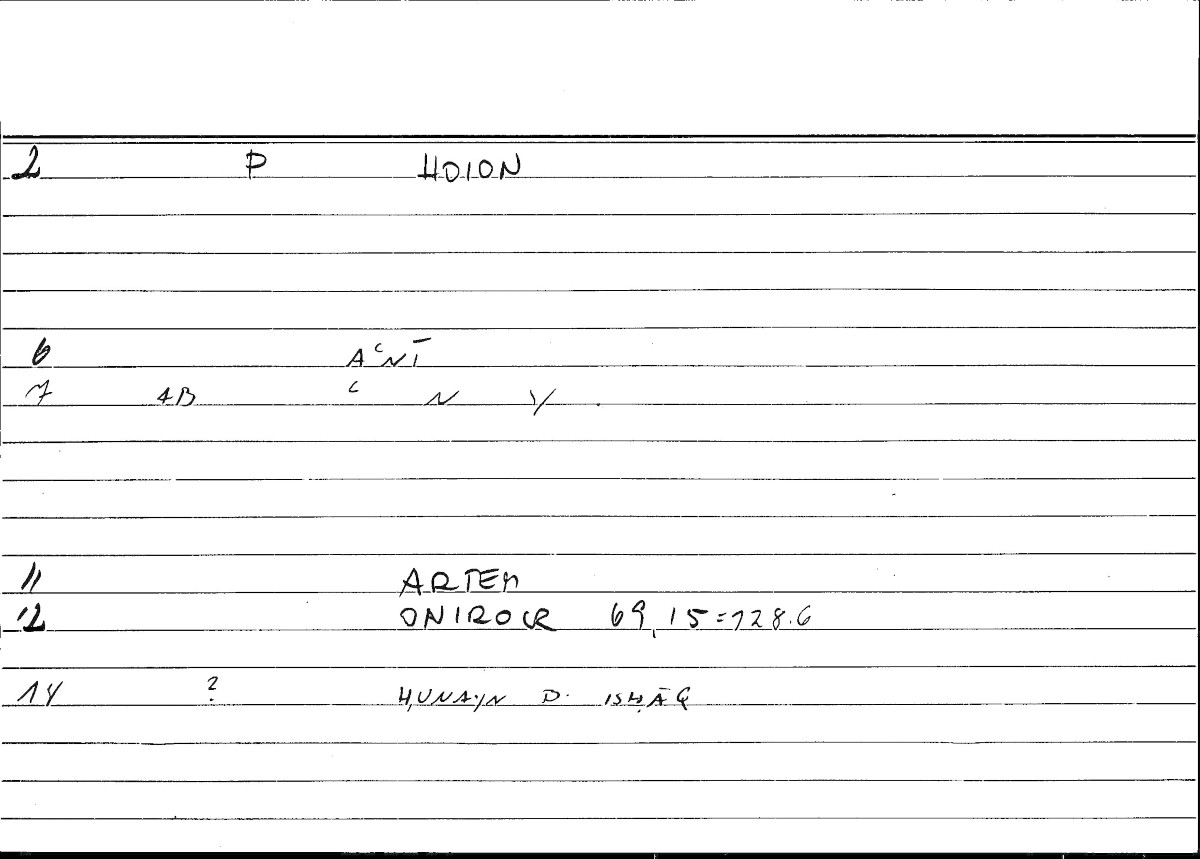 2 P HDION
6 AʿNĪ
7 AB ʿ N Y
11 ARTEM
12 ONIROCR 69,15=128.6
14 ? ḤUNAYN B. ISḤĀQ